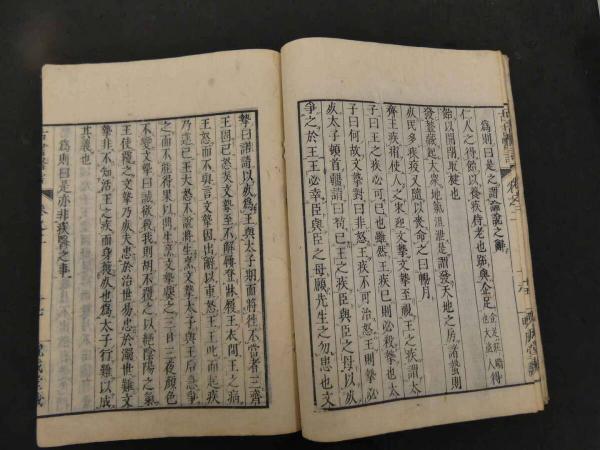 爲則曰是之謂論說之辭
仁人之得飴以養疾侍老也跖與企足得
飴以開閉取楗也
發蓋藏起大衆地氣沮泄是謂發天地之房諸蟄則
死民多疾疫又隨以喪命之曰暢月
齊王疾痏使人之宋迎文摯文摯至視王之疾謂太
子曰王之疾必可已也雖然王之疾已則必殺摯也太
子曰何故文摯對曰非怒王疾不可治怒王則摯必
死太子頓首彊請曰苟已王之疾臣與臣之母以死
爭之於王王必幸臣與臣之母願先生之勿患也文
摯曰諾請以死爲王與太子期而將往不當者三齊
王固已怒矣文摯至不解屨登牀履王衣問王之病
王怒而不與言文摯因出辭以重怒王王叱而起疾
乃遂已王大怒不說將生烹文摯太子與王后急爭
之而不能得果以鼎生烹文摯爨之三日三夜顏色
不變文摯曰誠欲殺我則胡不覆之以絕陰陽之氣
王使覆之文摯乃死夫忠於治世易忠於濁世難文
摯非不知活王之疾而身獲死也爲太子行難以成
其義也
爲則曰是亦非疾醫之事